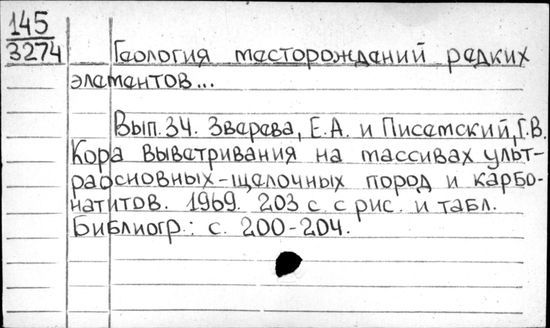 145
3274 Геология месторождений редких
элементов...
Вып. 34. Зверева, Е.А. и Писемский, Г.В.
Кора выветривания на массивах ульт-
раосновных-щелочных пород и карбо-
натитов. 1969. 203 с. с рис. и табл.
Библиогр.: с. 200-204.